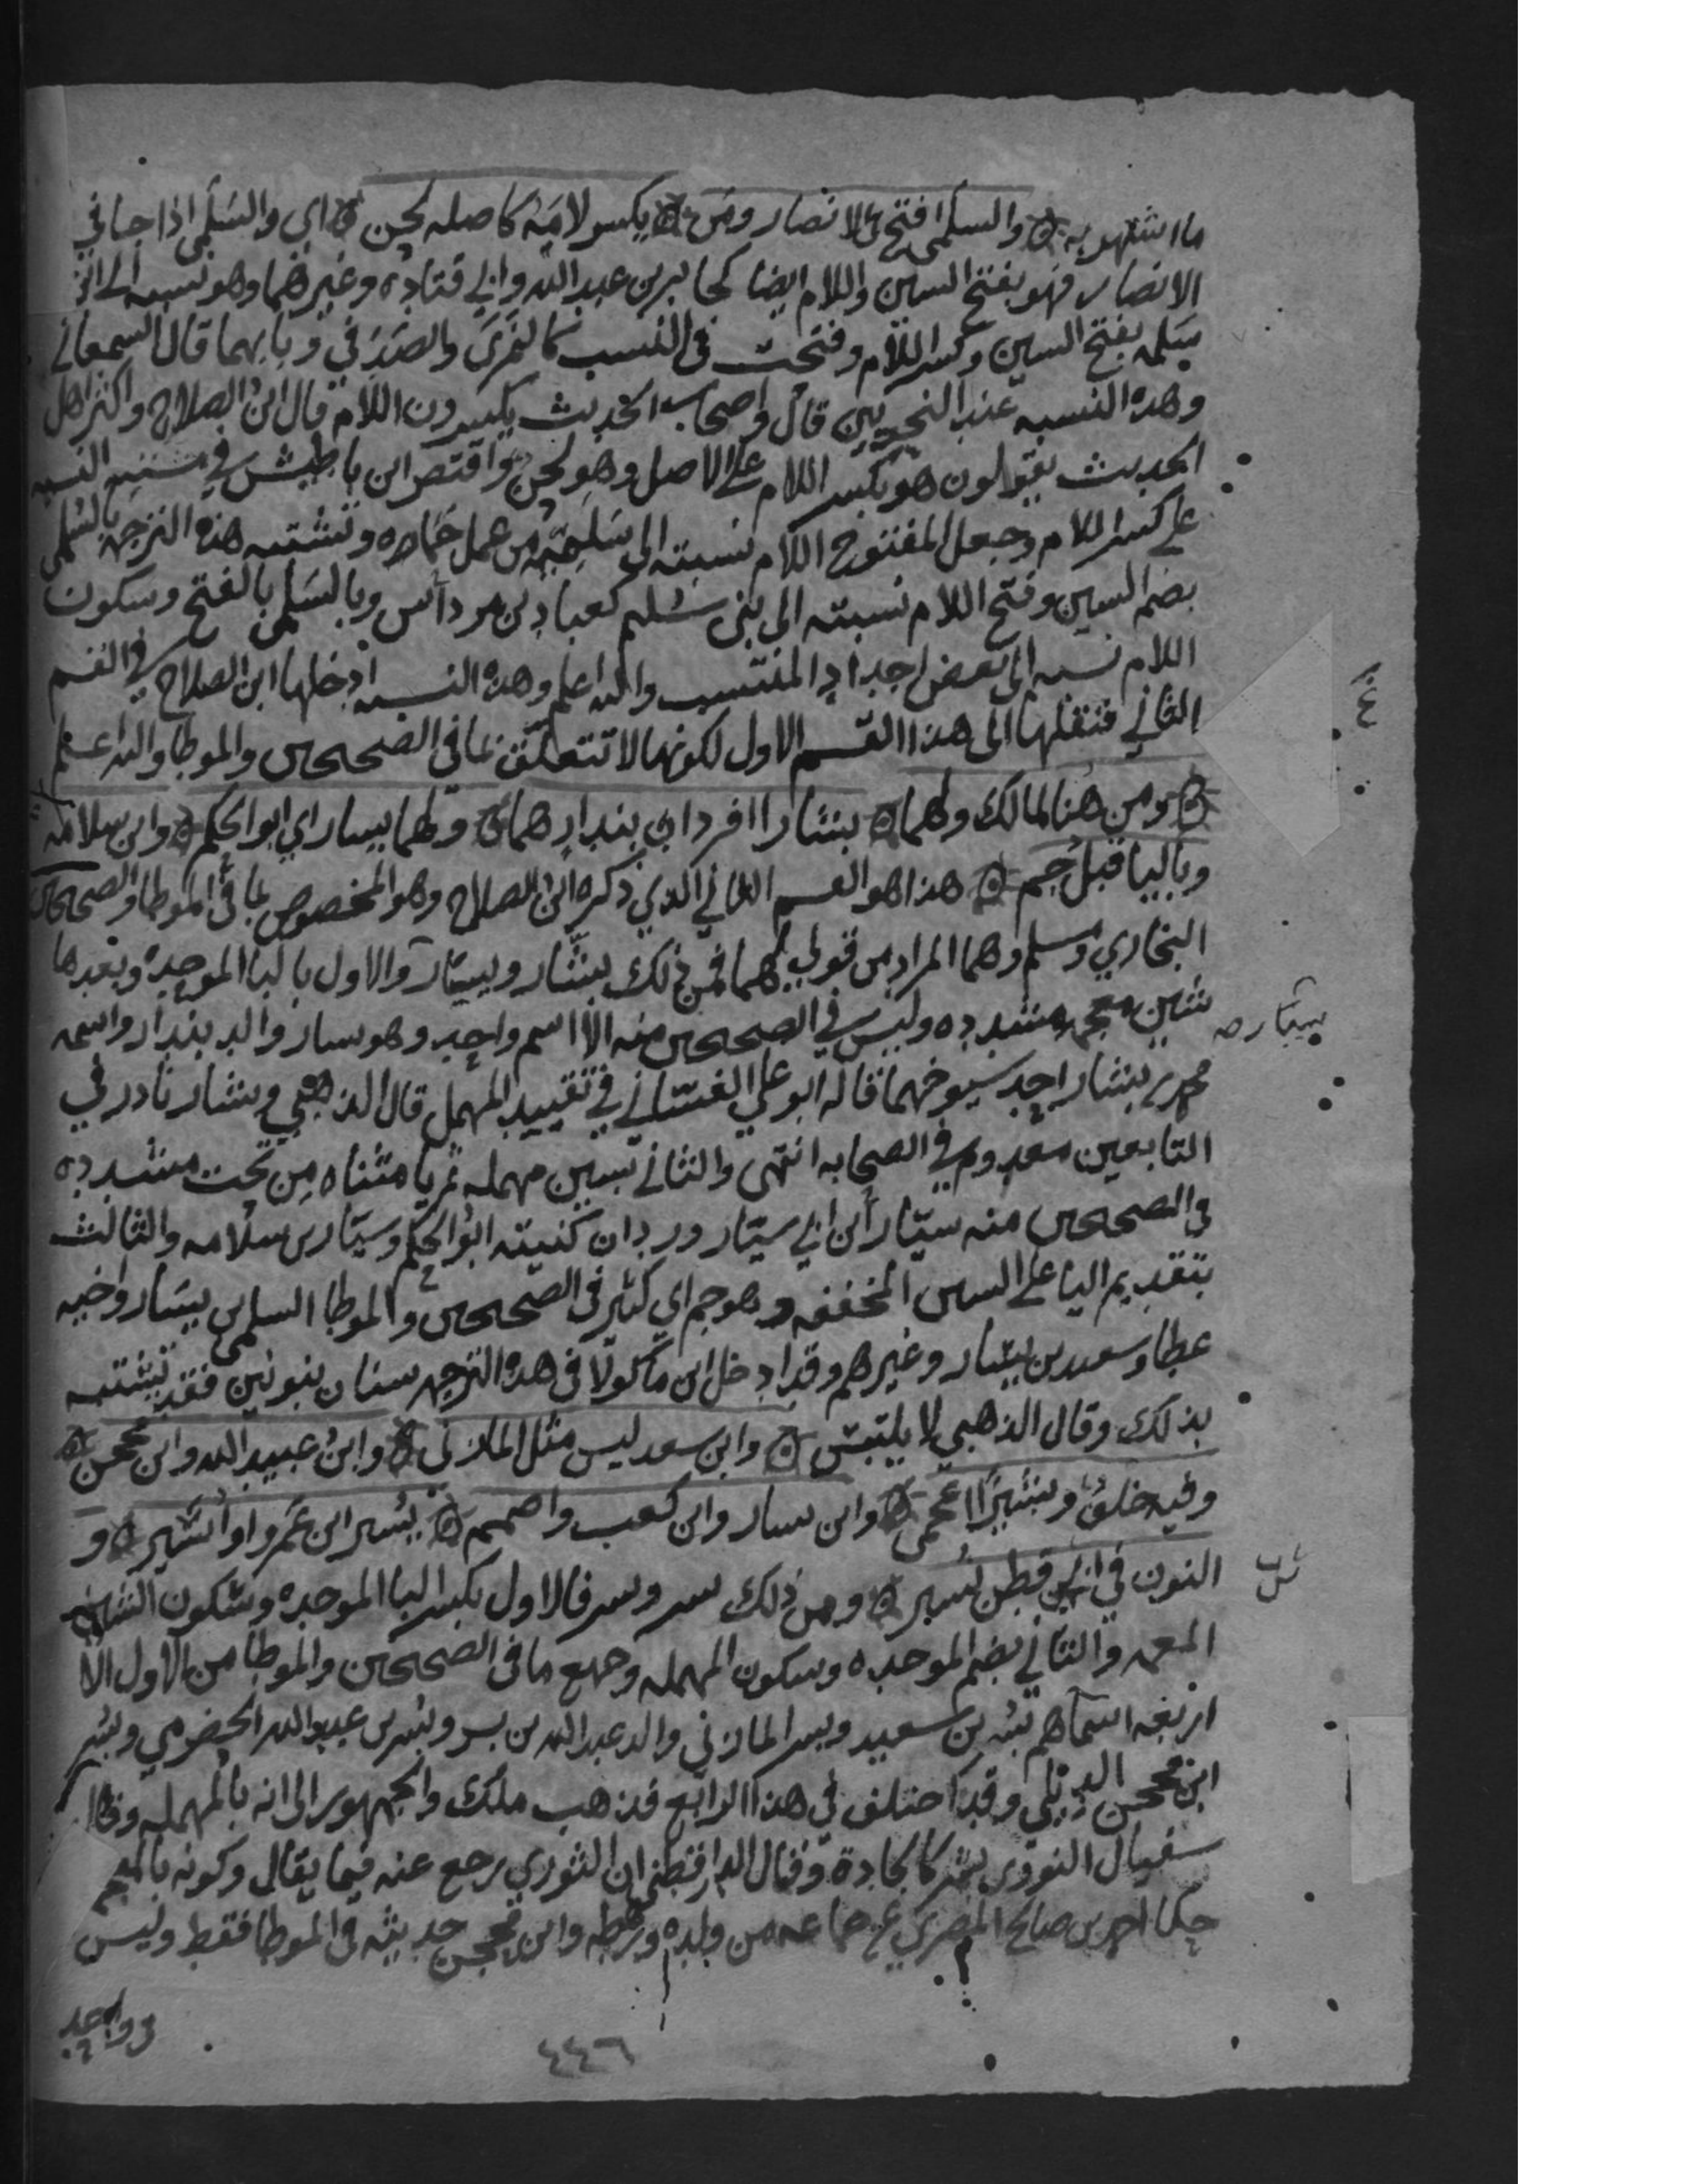 ما اشتهر به ه والسلمي افتح في الانصار ومن ه يكسر لامه كاصله لحن ه اي والسلمي اذا جا في
الانصار فهو بفتح السين واللام ايضا كجابر بن عبد الله وابي قتاده وغيرهما وهو نسبه الى
سلمه بفتح السين وكسر اللام وفتحت في النسب كالنمري والصدفي وبابهما قال السمعاني
وهذه النسبه عند النحويين قال واصحاب الحديث يكسرون اللام قال ابن الصلاح واكثر اهل
الحديث يقولون هو بكسر اللام على الاصل وهو لحن واقتصر ابن باطيش في مشتبه النسبه
على كسر اللام وجعل المفتوح اللام نسبته الى سلميه من عمل حماه وتشتبه هذه الترجمه بالسلمي
بضم السين وفتح اللام نسبته الى بني سليم كعباد بن مرداس وبالسلمي بالفتح وسكون
اللام نسبه الى بعض اجداد المنتسب والله اعلم وهذه النسبه ادخلها ابن الصلاح في القسم
الثاني فنقلتها الى هذا القسم الاول لكونها لا تتعلق بما في الصحيحين والموطا والله اعلم
ه ومن هنا لمالك ولهما ه بشارا افرد اب بندار هما ه ولهما سيار اي ابو الحكم ه وابن سلامه
وباليا قبل جم ه هذا هو القسم الثاني الذي ذكره ابن الصلاح وهو المخصوص بما في الموطا والصحيحين
البخاري ومسلم وهما المراد من قولي لهما فمن ذلك بشار ويسار والاول بالبا الموحده وبعدها
شين معجمه مشدده وليس في الصحيحين منه الا اسم واحد وهو بشار والد بندار واسمه
سيار صه
محمد بن بشار احد شيوخهما قاله ابو علي الغساني في تقييد المهمل قال الذهبي وبشار نادر في
التابعين معدوم في الصحابه انتهى والثاني بسين مهمله ثم يا مثناه من تحت مشدده
وفي الصحيحين منه سيار ابن ابي سيار وردان كنيته ابو الحكم وسيار بن سلامه والثالث
بتقديم اليا على السين المخففه وهو جم اي كثير في الصحيحين والموطا السلمن بن يسار واخيه
عطا وسعيد بن يسار وغيرهم وقد ادخل ابن ماكولا في هذه الترجمه سنان بنونين فقد يشتبه
بذلك وقال الذهبي لا يلتبس ه وابن سعيد بسر مثل المازني ه وابن عبيد الله وابن محجن ه
وفيه خلف وبشيرا اعجم ه وابن يسار وابن كعب واضمم ه يسير ابن عمرو او اسير ه و
النون في ابي قطن نسير ه ومن ذلك بسر وبسر فالاول بكسر البا الموحده وسكون الشين
المعجمه والثاني بضم الموحده وسكون المهمله وجميع ما في الصحيحين والموطا من الاول الا
اربعه اسماهم بسر بن سعيد وبسر المازني والد عبد الله بن بسر وبسر بن عبيد الله الحضرمي وبسر
ابن محجن الديلي وقد اختلف في هذا الرابع فذهب ملك والجمهور الى انه بالمهمله وقال
سفيان الثوري بشر كالجادة وقال الدارقطني ان الثوري رجع عنه فيما يقال وكونه بالمعجم
حكا احمد بن صالح المصري عن جماعه من ولده ورهطه وابن محجن حديثه في الموطا فقط وليس
في واحد
٤٤٦